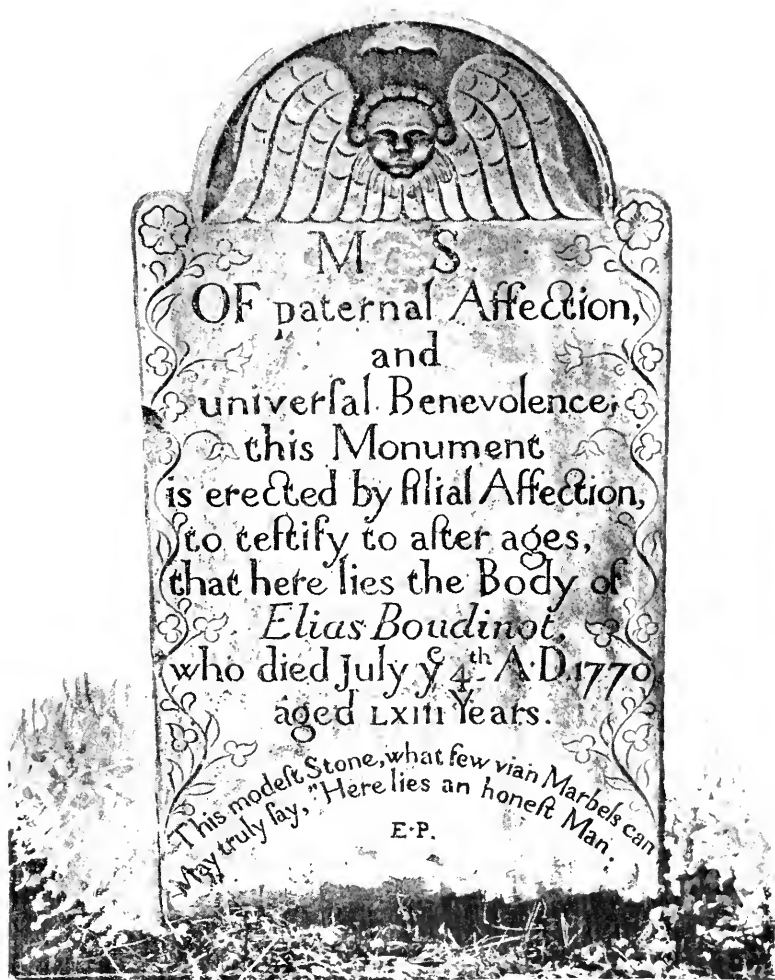 M S.
OF paternal Affection,
and
univerſal Benevolence,
this Monument
is erected by filial Affection,
to teſtify to after ages,
that here lies the Body of
Elias Boudinot,
who died July yͤ 4th A·D.1770
aged LXIII Years.
This modeſt Stone, what few vian Marbels can
May truly ſay, "Here lies an honeſt Man.
E·P.